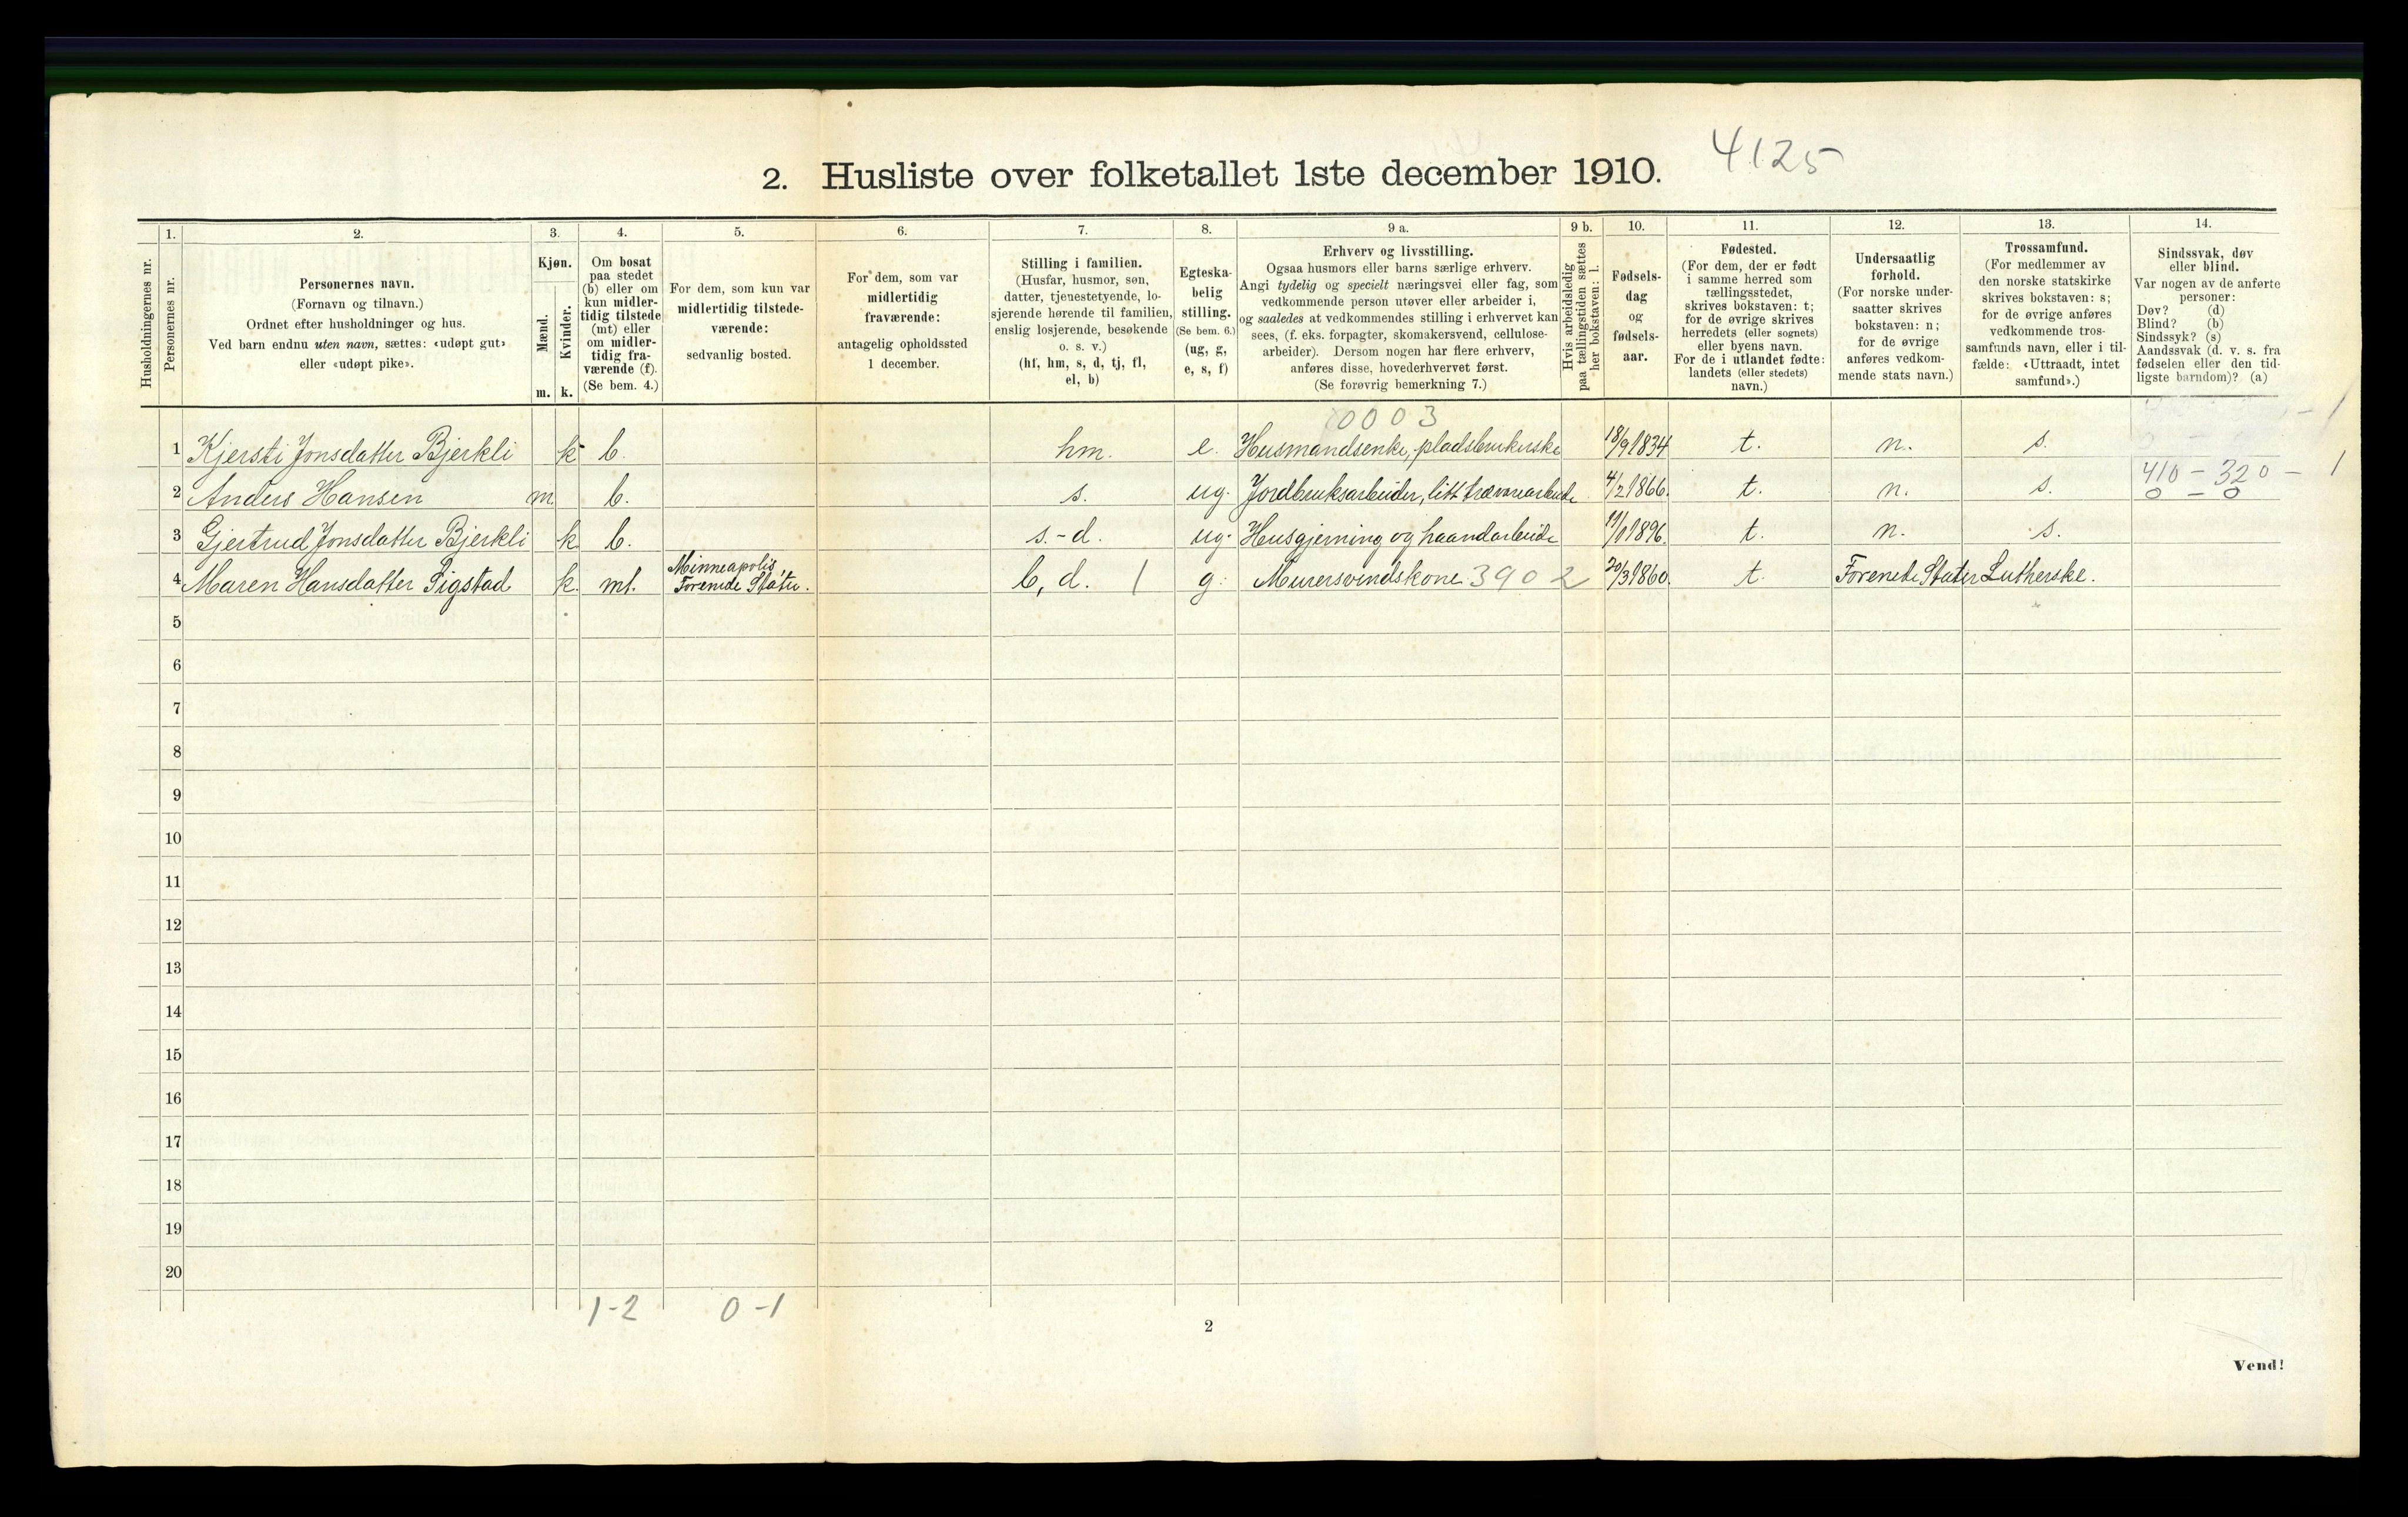 4125
2. Husliste over folketallet 1ste december 1910.
Husholdningernes nr.
1.
Personernes nr.
2.
Personernes navn.
(Fornavn og tilnavn.)
Ordnet efter husholdninger og hus.
Ved barn endnu uten navn, sættes: «udøpt gut»
eller «udøpt pike».
3.
Kjøn.
Mænd.
Kvinder.
m. k.
4.
Om bosat
paa stedet
(b) eller om
kun midler-
tidig tilstede
(mt) eller
om midler-
tidig fra-
værende (f).
(Se bem. 4.)
5.
For dem, som kun var
midlertidig tilstede-
værende:
sedvanlig bosted.
6.
For dem, som var
midlertidig
fraværende:
antagelig opholdssted
1 december.
7.
Stilling i familien.
(Husfar, husmor, søn,
datter, tjenestetyende, lo-
sjerende hørende til familien,
enslig losjerende, besøkende
o. s. v.)
(hf, hm, s, d, tj, fl,
el, b)
8.
Egteska-
belig
stilling.
(Se bem. 6.)
(ug, g,
e, s, f)
9 a.
Erhverv og livsstilling.
Ogsaa husmors eller barns særlige erhverv.
Angi tydelig og specielt næringsvei eller fag, som
vedkommende person utøver eller arbeider i,
og saaledes at vedkommendes stilling i erhvervet kan
sees, (f. eks. forpagter, skomakersvend, cellulose-
arbeider). Dersom nogen har flere erhverv,
anføres disse, hovederhvervet først.
(Se forøvrig bemerkning 7.)
9 b.
Hvis arbeidsledig
paa tællingstiden sættes
her bokstaven: l.
10.
Fødsels-
dag
og
fødsels-
aar.
11.
Fødested.
(For dem, der er født
i samme herred som
tællingsstedet,
skrives bokstaven: t;
for de øvrige skrives
herredets (eller sognets)
eller byens navn.
For de i utlandet fødte:
landets (eller stedets)
navn.)
12.
Undersaatlig
forhold.
(For norske under-
saatter skrives
bokstaven: n;
for de øvrige
anføres vedkom-
mende stats navn.)
13.
Trossamfund.
(For medlemmer av
den norske statskirke
skrives bokstaven: s;
for de øvrige anføres
vedkommende tros-
samfunds navn, eller i til-
fælde: «Uttraadt, intet
samfund».)
14.
Sindssvak, døv
eller blind.
Var nogen av de anførte
personer:
Døv? (d)
Blind? (b)
Sindssyk? (s)
Aandssvak (d. v. s. fra
fødselen eller den tid-
ligste barndom)? (a)
0003
1 Kjersti Jonsdatter Bjerkli k b. hm. e. Husmandsenke, pladsbrukerske 18/9 1834 t. n. s.
2 Anders Hansen m. b. s. ug. Jordbruksarbeider, litt trævarearbeide 4/2 1866. t. n. s. 410 - 320 - 1
0 - 0
3 Gjertrud Jonsdatter Bjerkli k b. s.-d. ug. Husgjerning og haandarbeide t. n. s.
Minneapolis,
4 Maren Hansdatter Sigstad k. mt. Forenede Stater. b, d. 1 g. Murersvendskone 3902 20/3 1860. t. Forenede Stater Lutherske.
5
6
7
8
9
10
11
12
13
14
15
16
17
18
19
20
1-2 0-1
2
Vend!